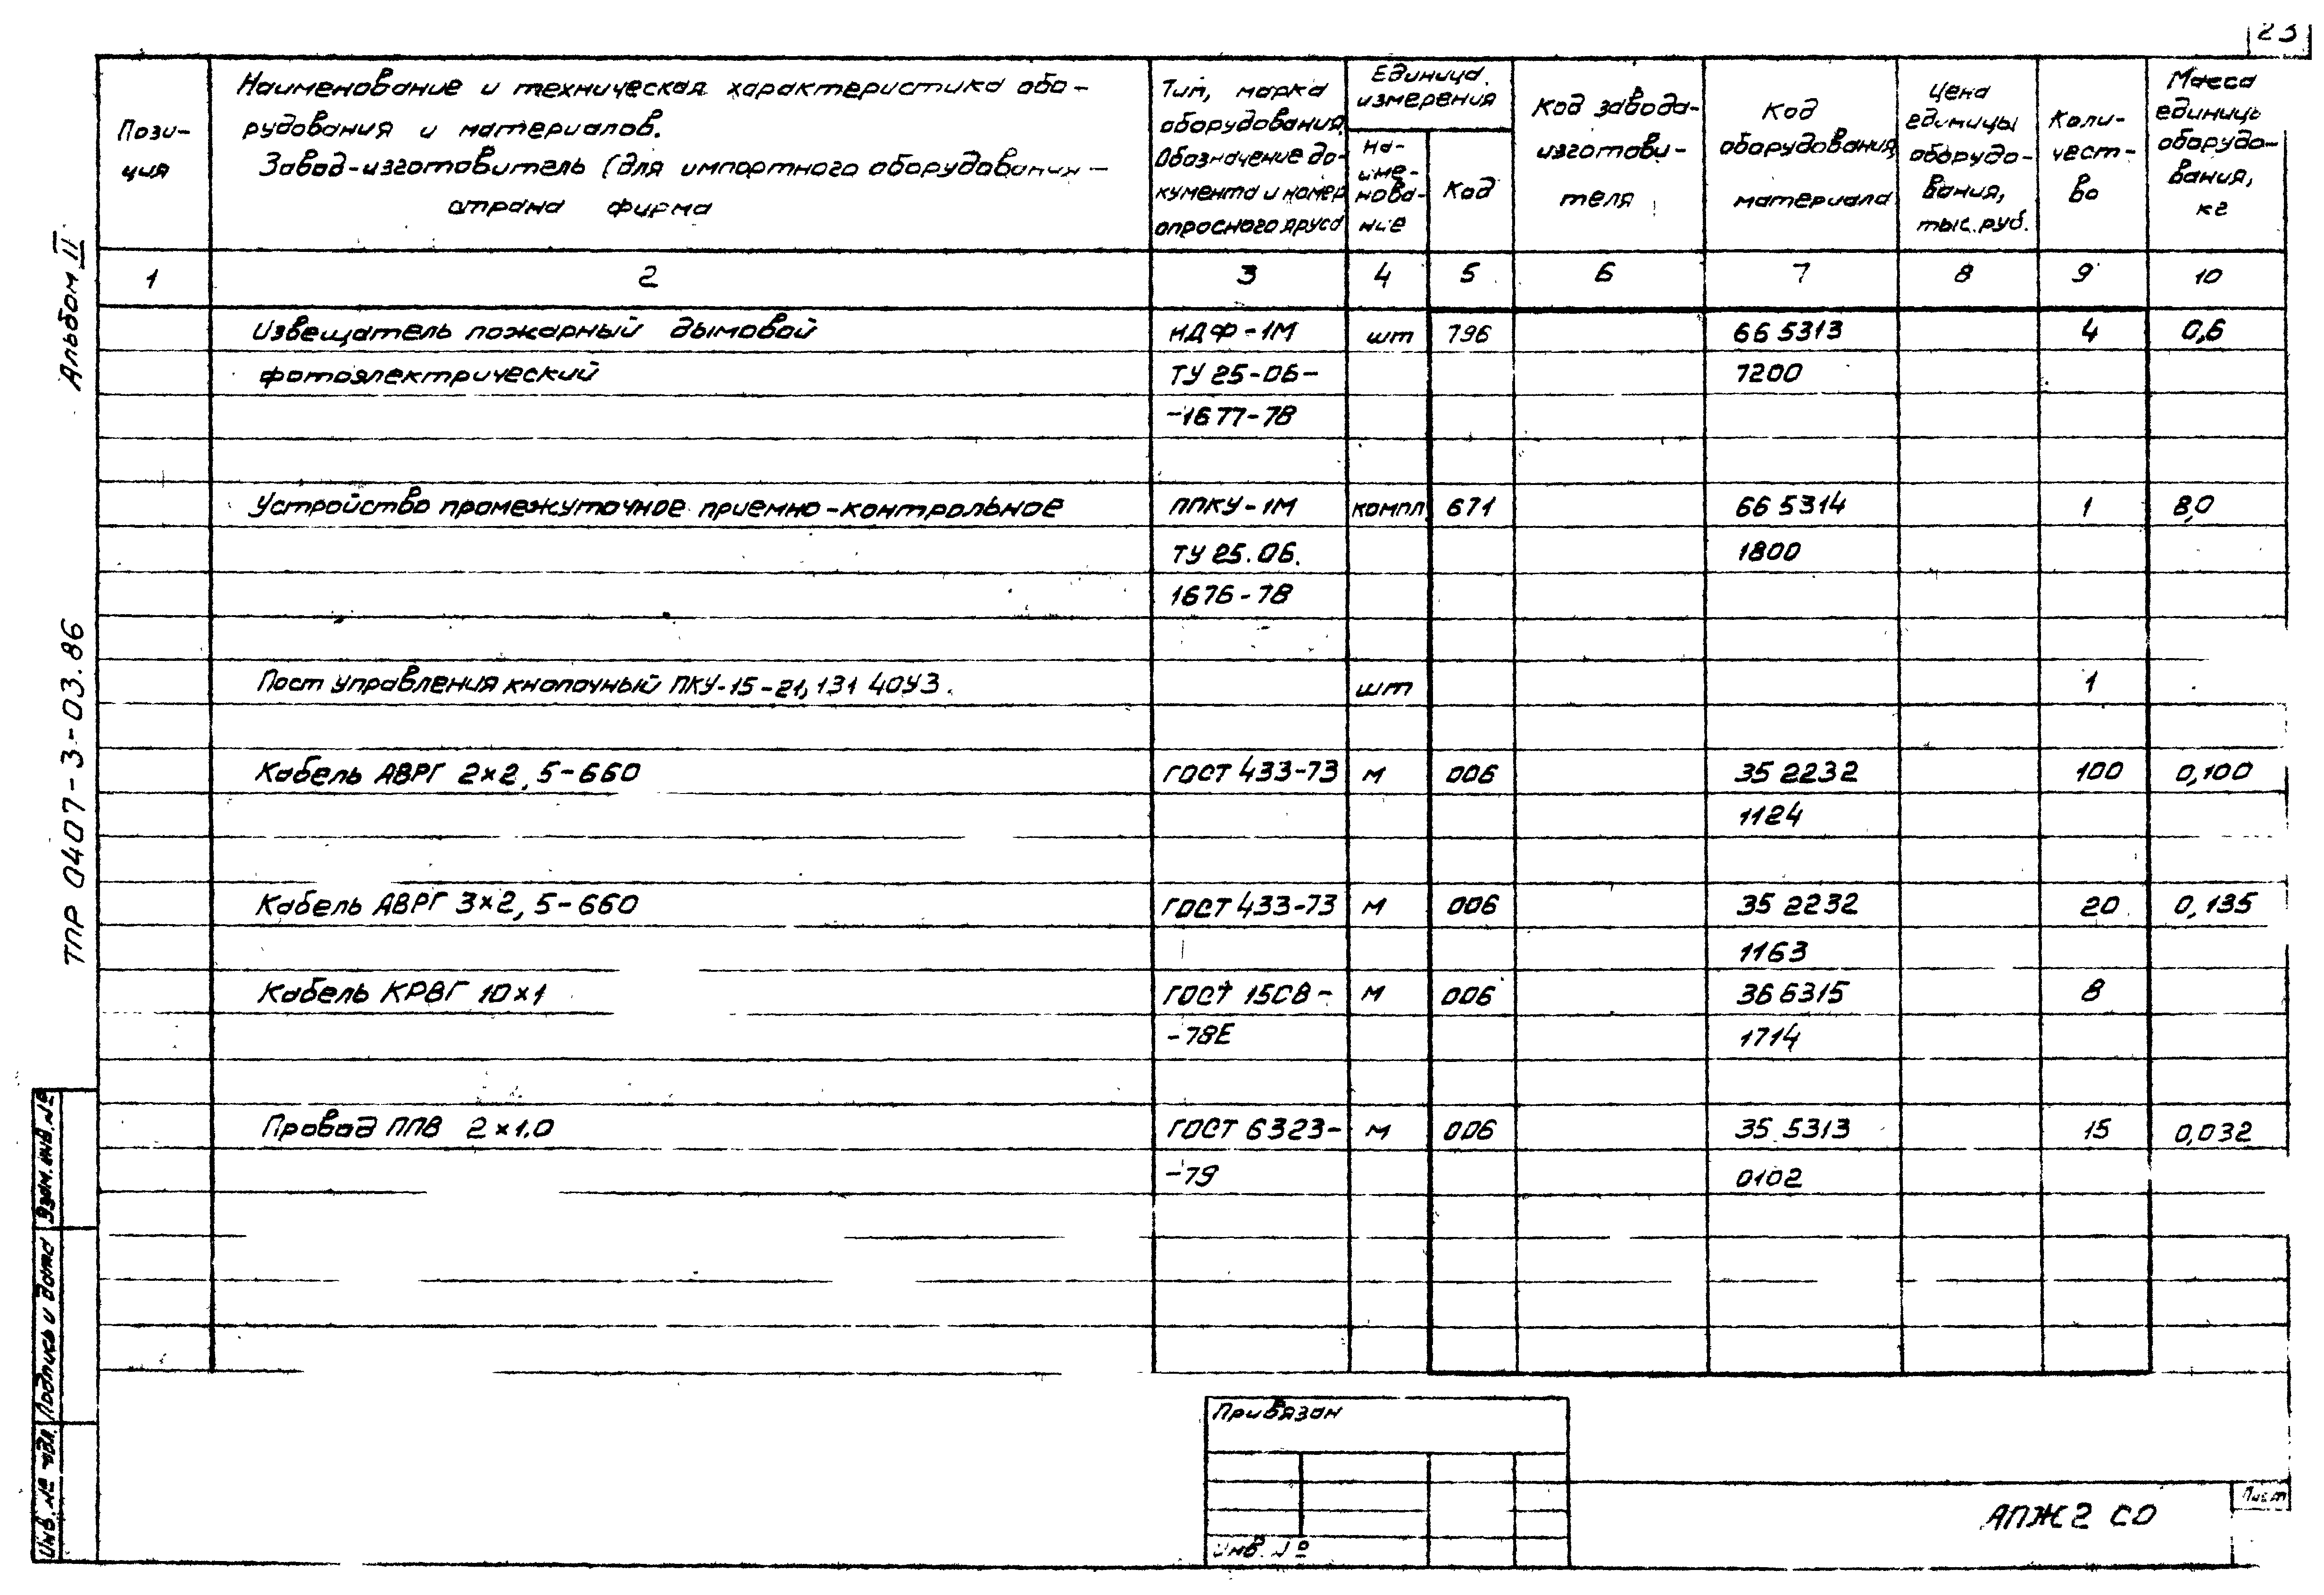 23
Альбом II
ТПР 0407-3-03.86
Пози-
ция
Наименование и техническая характеристика обо-
рудования и материалов.
Завод-изготовитель (для импортного оборудования -
страна фирма
Тип, марка
оборудования.
Обозначение до-
кумента и номер
опросного
Единица
измерения
на-
име-
нова-
ние
Код
Код завода-
изготови-
теля
Код
оборудования,
материала
Цена
единицы
оборудо-
вания,
тыс.руб.
Коли-
чест-
во
Масса
единицы
оборудо-
вания,
кг
1 2 3 4 5 6 7 8 9 10
Извещатель пожарный дымовой ИДФ-1М шт 796 66 5313 4 0,6
фотоэлектрический ТУ 25-06- 7200
-1677-78
Устройство промежуточное приемно-контрольное ППКУ-1М компл 671 66 5314 1 8,0
ТУ 25.06. 1800
1676-78
Пост управления кнопочный ПКУ-15-21,131 40У3. шт 1
Кабель АВРГ 2×2,5-660 ГОСТ 433-73 м 006 35 2232 100 0,100
1124
Кабель АВРГ 3×2,5-660 ГОСТ 433-73 м 006 35 2232 20 0,135
1163
Кабель КРВГ 10×1 ГОСТ 1508- м 006 36 6315 8
-78Е 1714
Провод ППВ 2×1.0 ГОСТ 6323- м 006 35 5313 15 0,032
-79 0102
Взам. инв. №
Подпись и дата
Инв. №
Привязан
Инв. №
АПЖ2 СО
Лист